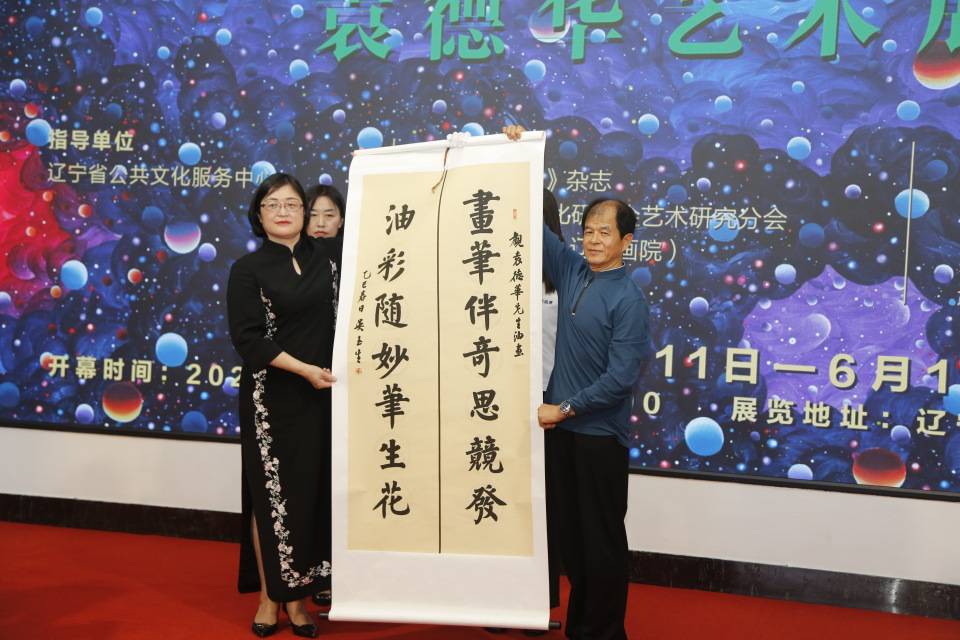 袁德华艺术展
指导单位
辽宁省公共文化服务中心
》杂志
艺术研究分会
画院）
开幕时间：202
11日—6月1
0 展览地址：辽宁
觀袁德華先生油画
畫筆伴奇思競發
油彩随妙筆生花
乙巳春日吴玉生